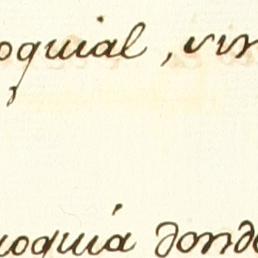 oquial, sin
roquia donde